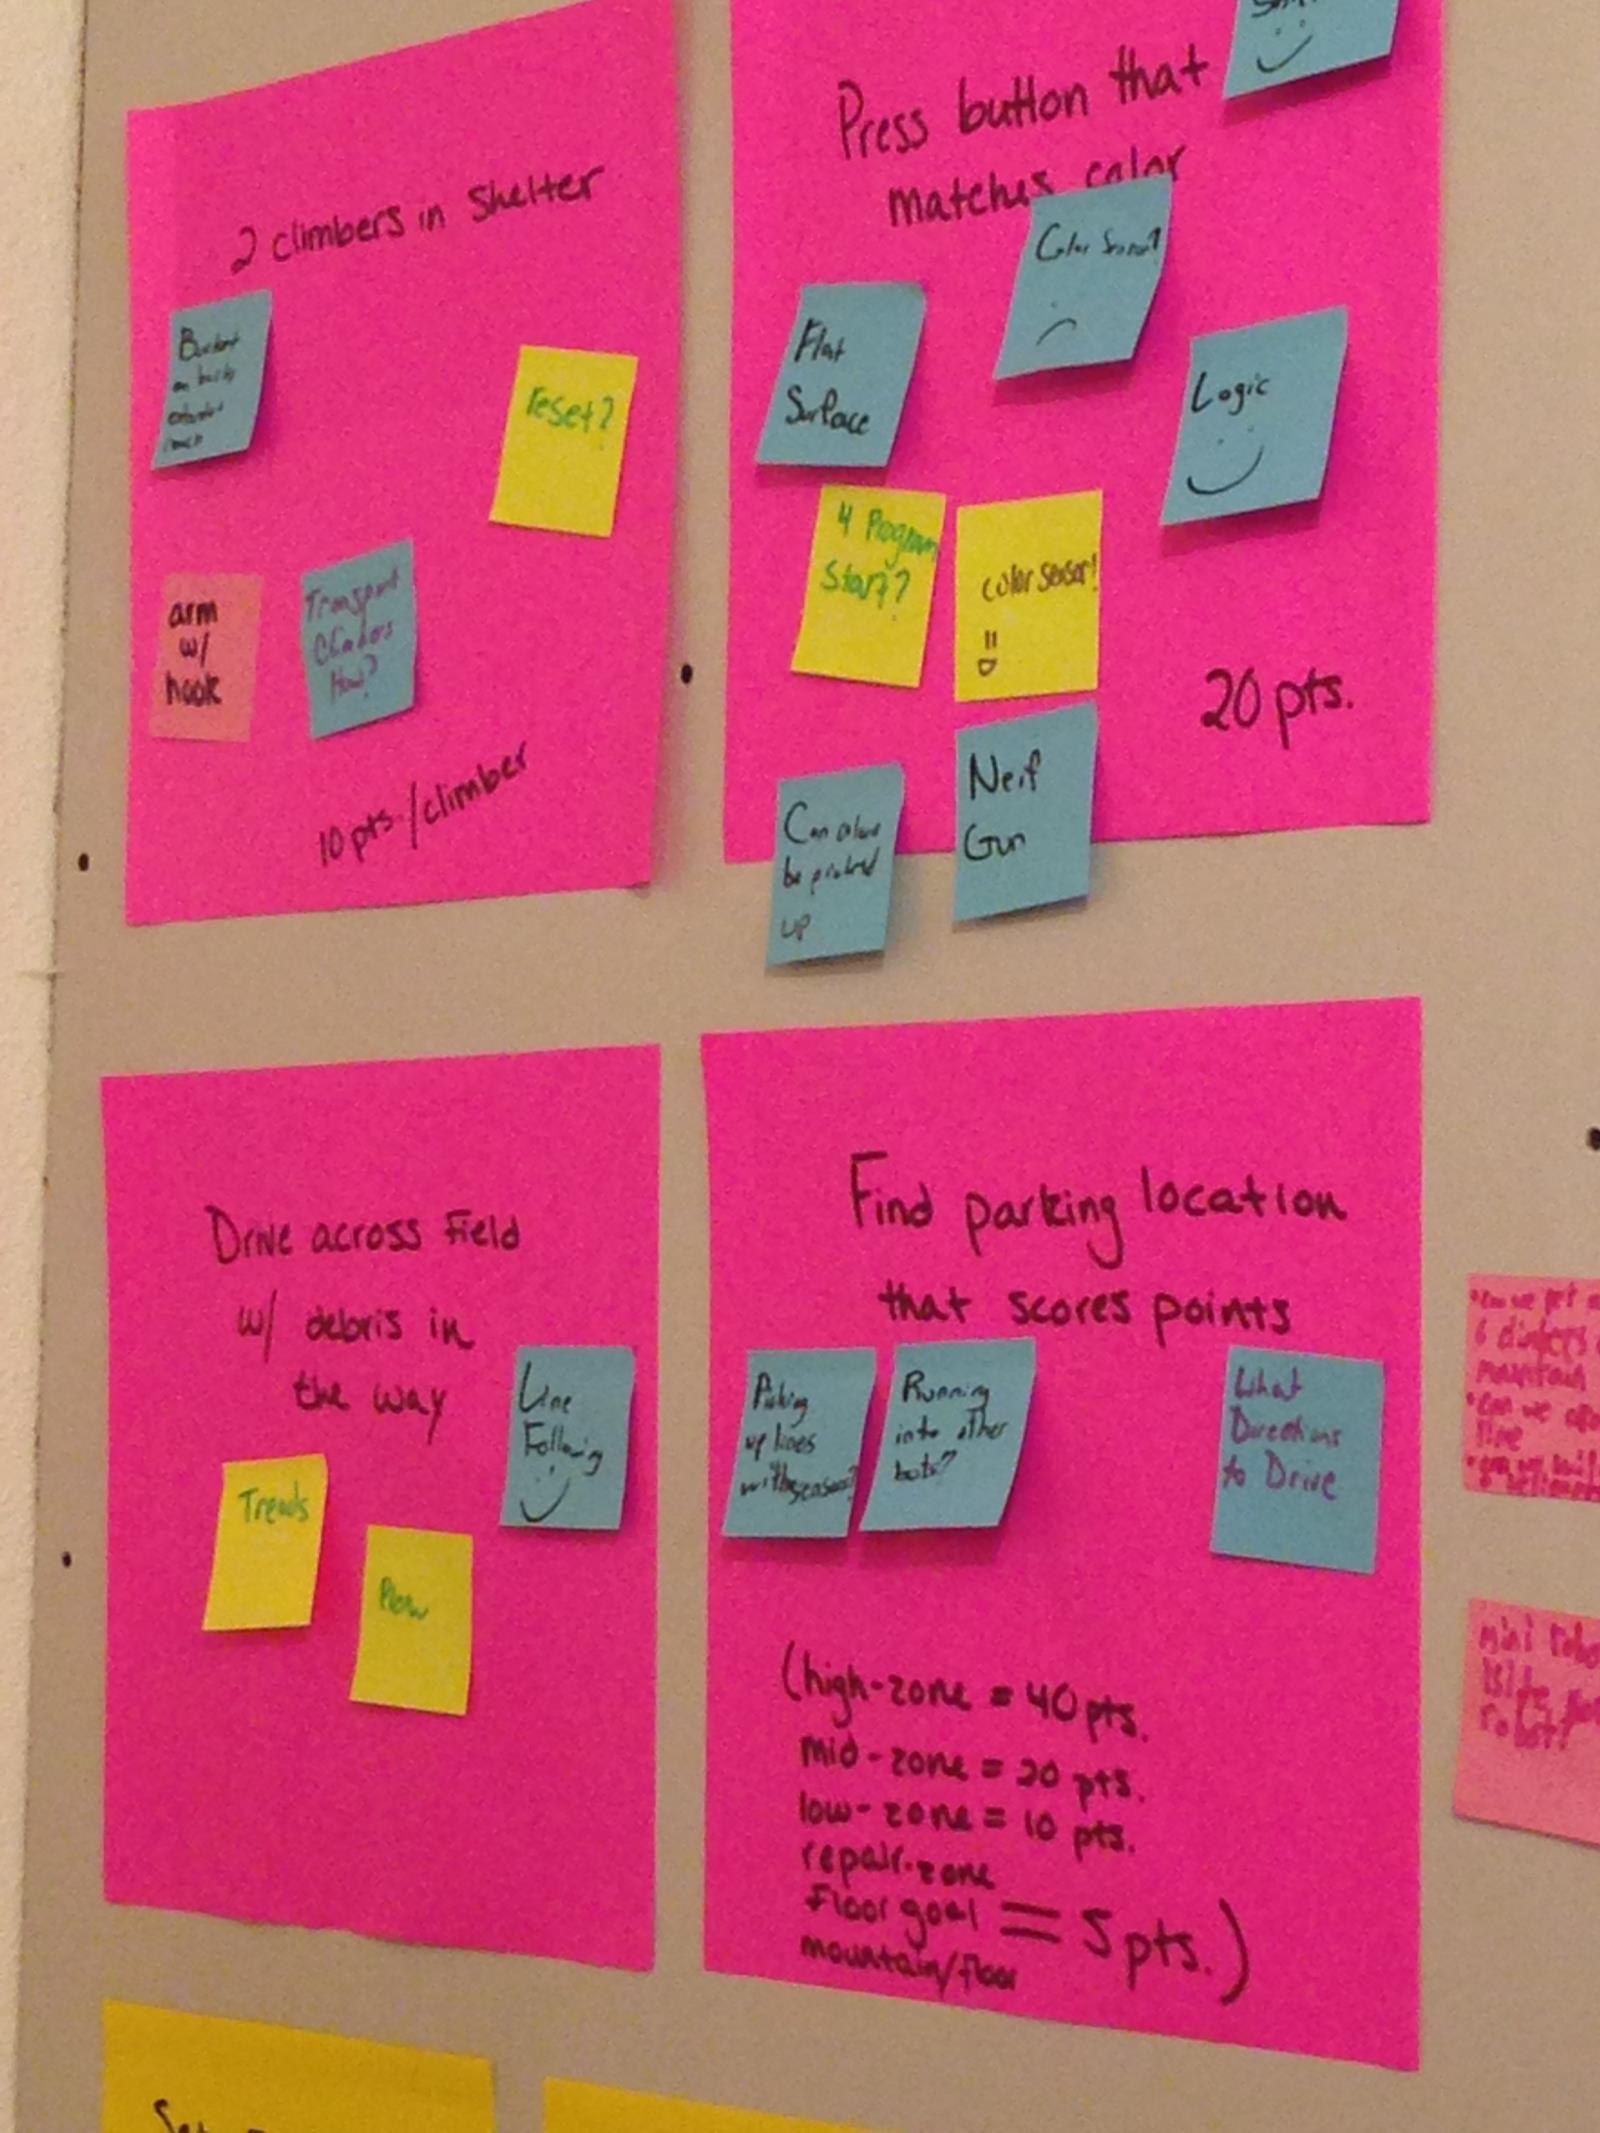 2 climbers in Shelter
Bucket
on back
reset?
arm
w/
hook
Transport
Climbers
How?
10 pts./climber
Press button that
matches color
Color Sensor?
Flat
Surface
Logic
4 Program
Start?
color sensor!
=D
20 pts.
Can also
be picked
up
Nerf
Gun
Drive across field
w/ debris in
the way
Line
Following
Treads
Plow
Find parking location
that scores points
Picking
up lines
with sensors?
Running
into other
bots?
What
Directions
to Drive
(high-zone = 40 pts.
mid-zone = 20 pts.
low-zone = 10 pts.
repair-zone
floor goal = 5 pts.)
mountain/floor
•can we get
6 climbers
mountain
•can we
line
mini robo
robot?
Set